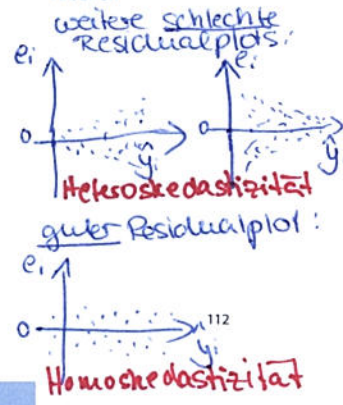 weitere schlechte
Residualplots:
ei ei
0 0
ŷi ŷ
Heteroskedastizität
guter Residualplot:
ei
0 112
yi
Homoskedastizität